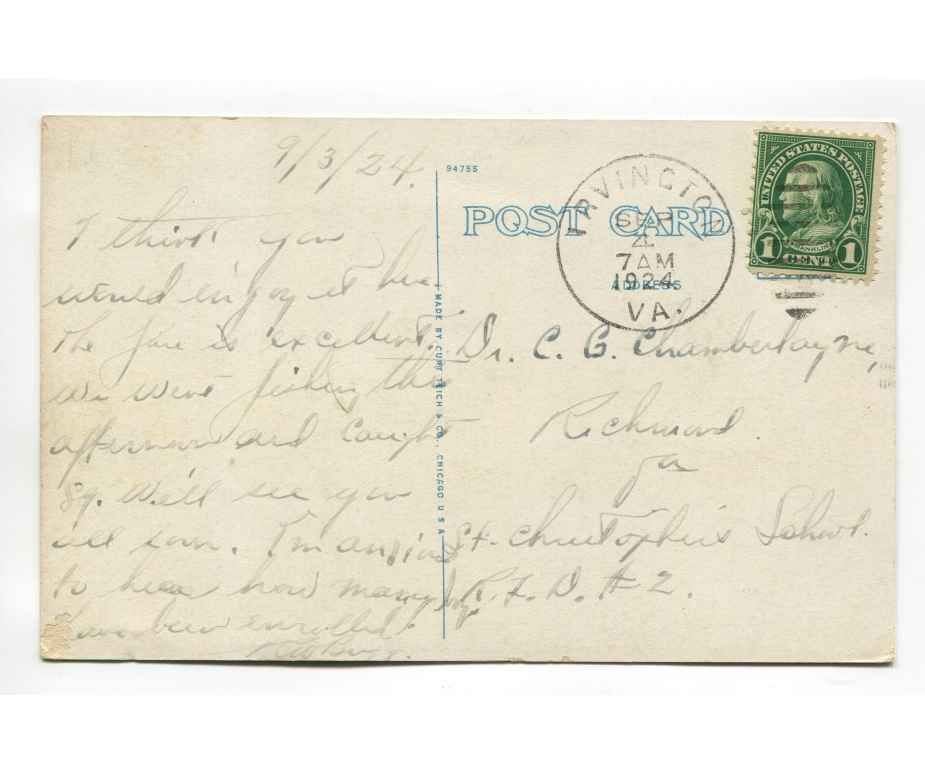 9/3/24.
I think you
would enjoy it here
The fare is excellent.
We went fishing this
afternoon and caught
89. Will see you
all soon. I'm anxious
to hear how many boys
have been enrolled.
94755
POST CARD
ADDRESS
MADE BY CURT TEICH & CO., CHICAGO U S A
IRVINGTON
SEP
4
7AM
1924
VA.
UNITED STATES POSTAGE
FRANKLIN
1 CENT 1
Dr. C. G. Chamberlayne,
Richmond
Va
St. Christopher's School.
R. F. D. # 2.